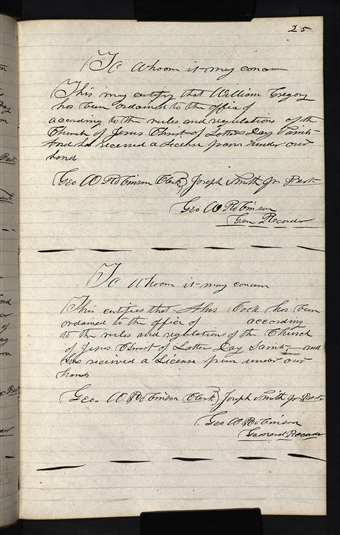 25
To whom it may concern
This may certify that William Gregory
has been ordained to the office of
according to the rules and regulations of the
Church of Jesus Christ of Latter Day Saints
and has received a License from under our
hand
Geo W Robinson Clerk Joseph Smith Jr Prest
Geo W Robinson
Gen. Recorder
To whom it may concern
This certifies that Cook has been
ordained to the office of according
to the rules and regulation of the Church
of Jesus Christ of Latter Day Saints and
has received a License from under our
hands
Geo. W Robinson Clerk Joseph Smith Jr Prest
Geo W Robinson
General Recorder